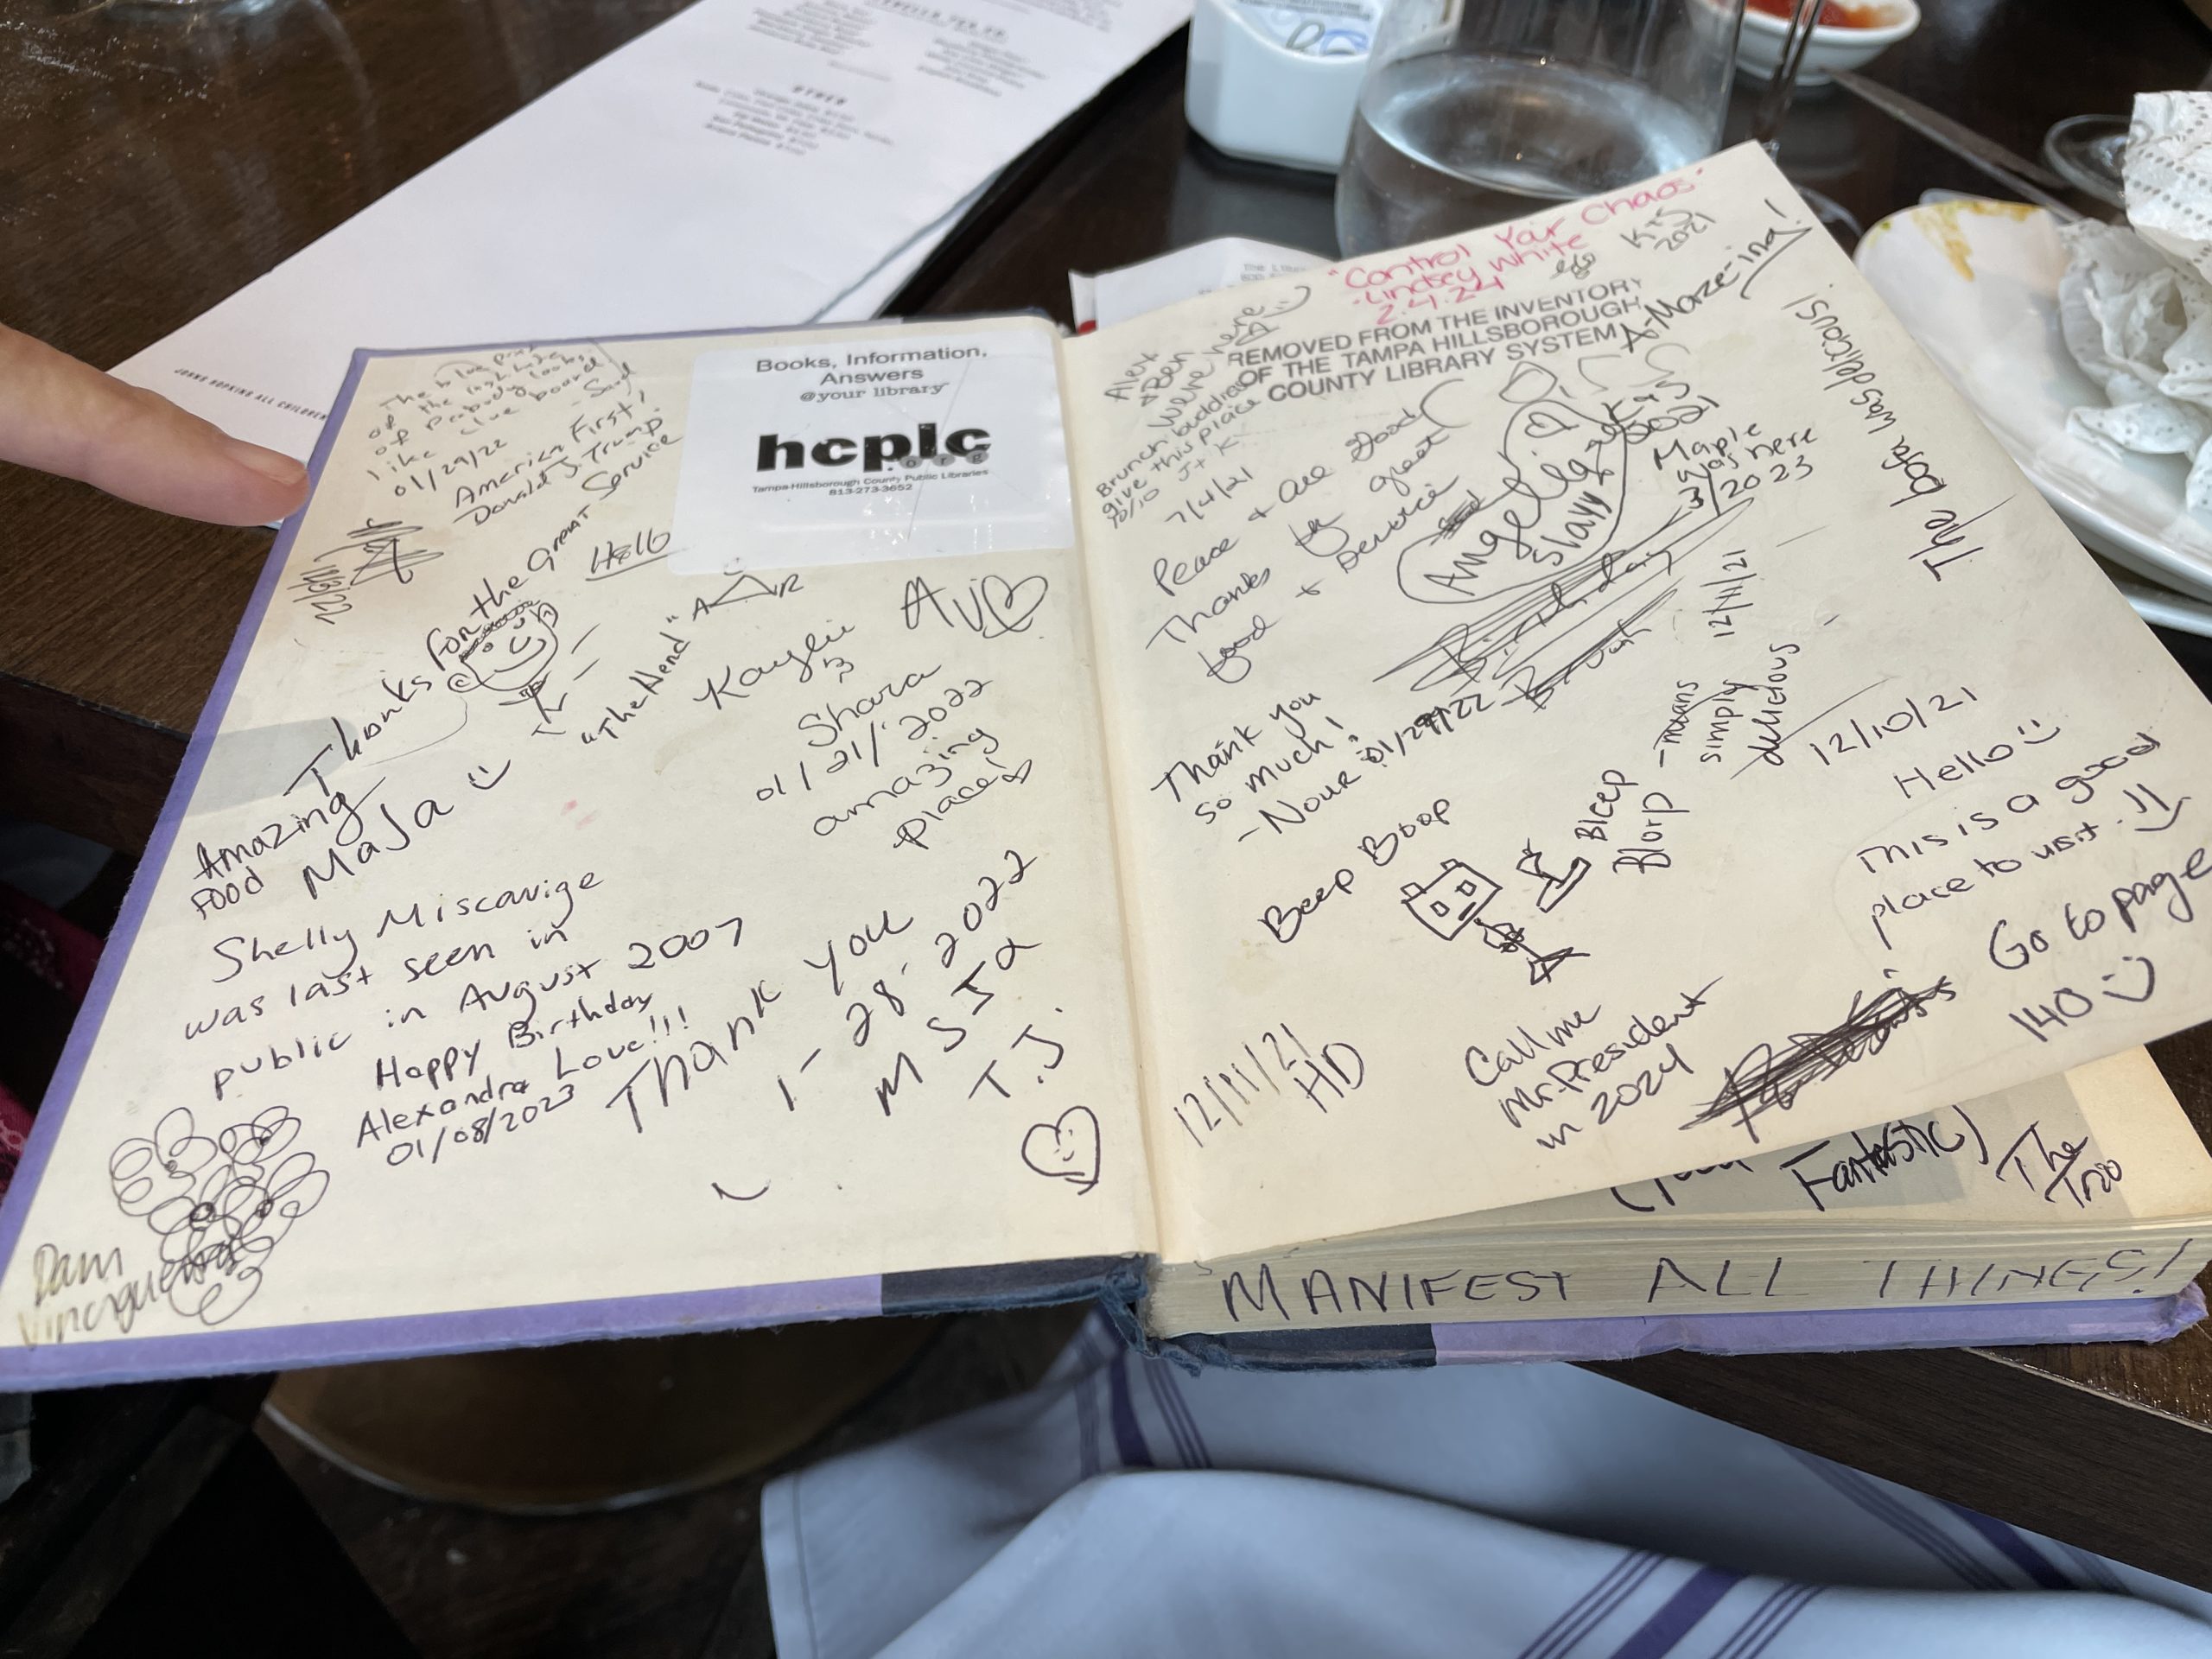 OTHER
JOHNS HOPKINS ALL CHILDREN
The blue print
of the light bulb
of Peabody looks
like clue board
01/29/22
America First,
Donald J. Trump
Books, Information,
Answers
@your library
hcplc
.org
Tampa-Hillsborough County Public Libraries
813-273-3652
Hello
Thanks for the great Service
"The Hend"
Kaylii
Shara
01/21/2022
amazing
place!
Amazing
FOOD
Maja
Shelly Miscavige
was last seen in
public in August 2007
Happy Birthday
Alexandra Love!!!
01/08/2023
Thank you
1-28-2022
T.J.
Dam
"Control Your Chaos"
-Lindsey White
2.4.24
K+S
2021
REMOVED FROM THE INVENTORY
OF THE TAMPA HILLSBOROUGH
COUNTY LIBRARY SYSTEM
A-Maze-ing!
Alex
+ Ben
were here
Brunch buddies
give this place
10/10 J+K
7/4/21
Peace + are good
Thanks for great
food + service
Angelica
slayy
2021
Maple
was here
3/2023
The bofa was delicious!
Birthday
Brunch
12/11/21
Thank you
so much!
-Nour 01/29/22
-means
simply
delicious
12/10/21
Hello
This is a good
place to visit.
Go to page
140
Beep Boop
Bleep
Blorp
12/11/21
HD
Call me
Mr. President
in 2024
Fantastic)
The
Trio
MANIFEST ALL THINGS!